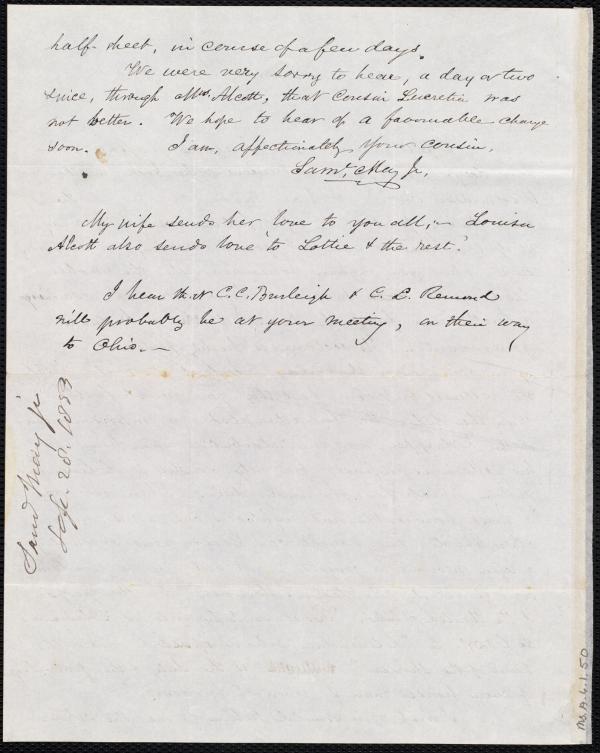 half-sheet, in course of a few days.
We were very sorry to hear, a day or two
since, through Mrs. Alcott, that Cousin Lucretia was
not better. We hope to hear of a favourable change
soon. I am, affectionately, your cousin,
Saml. May Jr.
My wife sends her love to you all;— Louisa
Alcott also sends love to Lottie & the rest.
I hear that C. C. Burleigh & C. L. Remond
will probably be at your meeting, on their way
to Ohio.—
Saml May Jr
Sept. 28. 1853
Ms.A.6.1.50